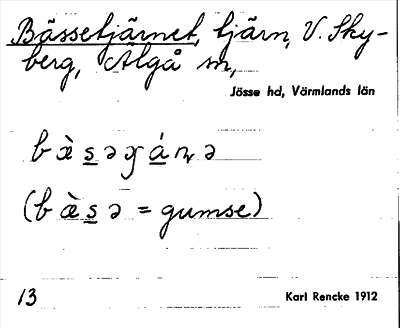 Bässetjärnet, tjärn, V. Sky-
berg, Älgå sn,
Jösse hd, Värmlands län
bæ̀s̲əɣá̲ɳə
(bæ̀s̲ə = gumse)
13
Karl Rencke 1912